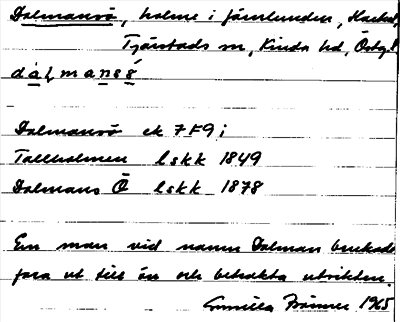 Dalmansö, holme i Järnlunden, Hackel,
Tjärstads sn, Kinda hd, Östg.l.
dálmansǿ
Dalmansö ek 7F9i
Tallholmen lskk 1849
Dalmans Ö lskk 1878
En man vid namn Dalman brukade
fara ut till ön och betrakta utsikten.
Gunilla Brömer 1965